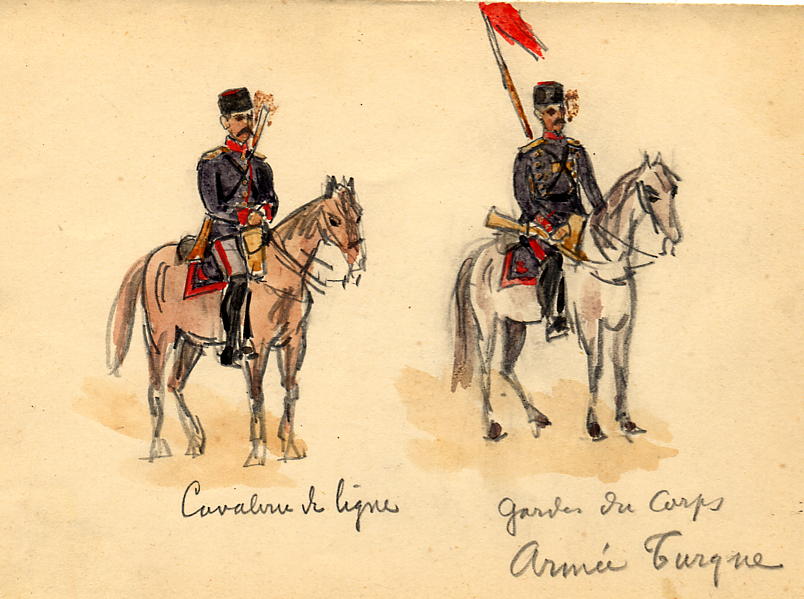 Cavalerie de ligne
Gardes du Corps
Armée Turque